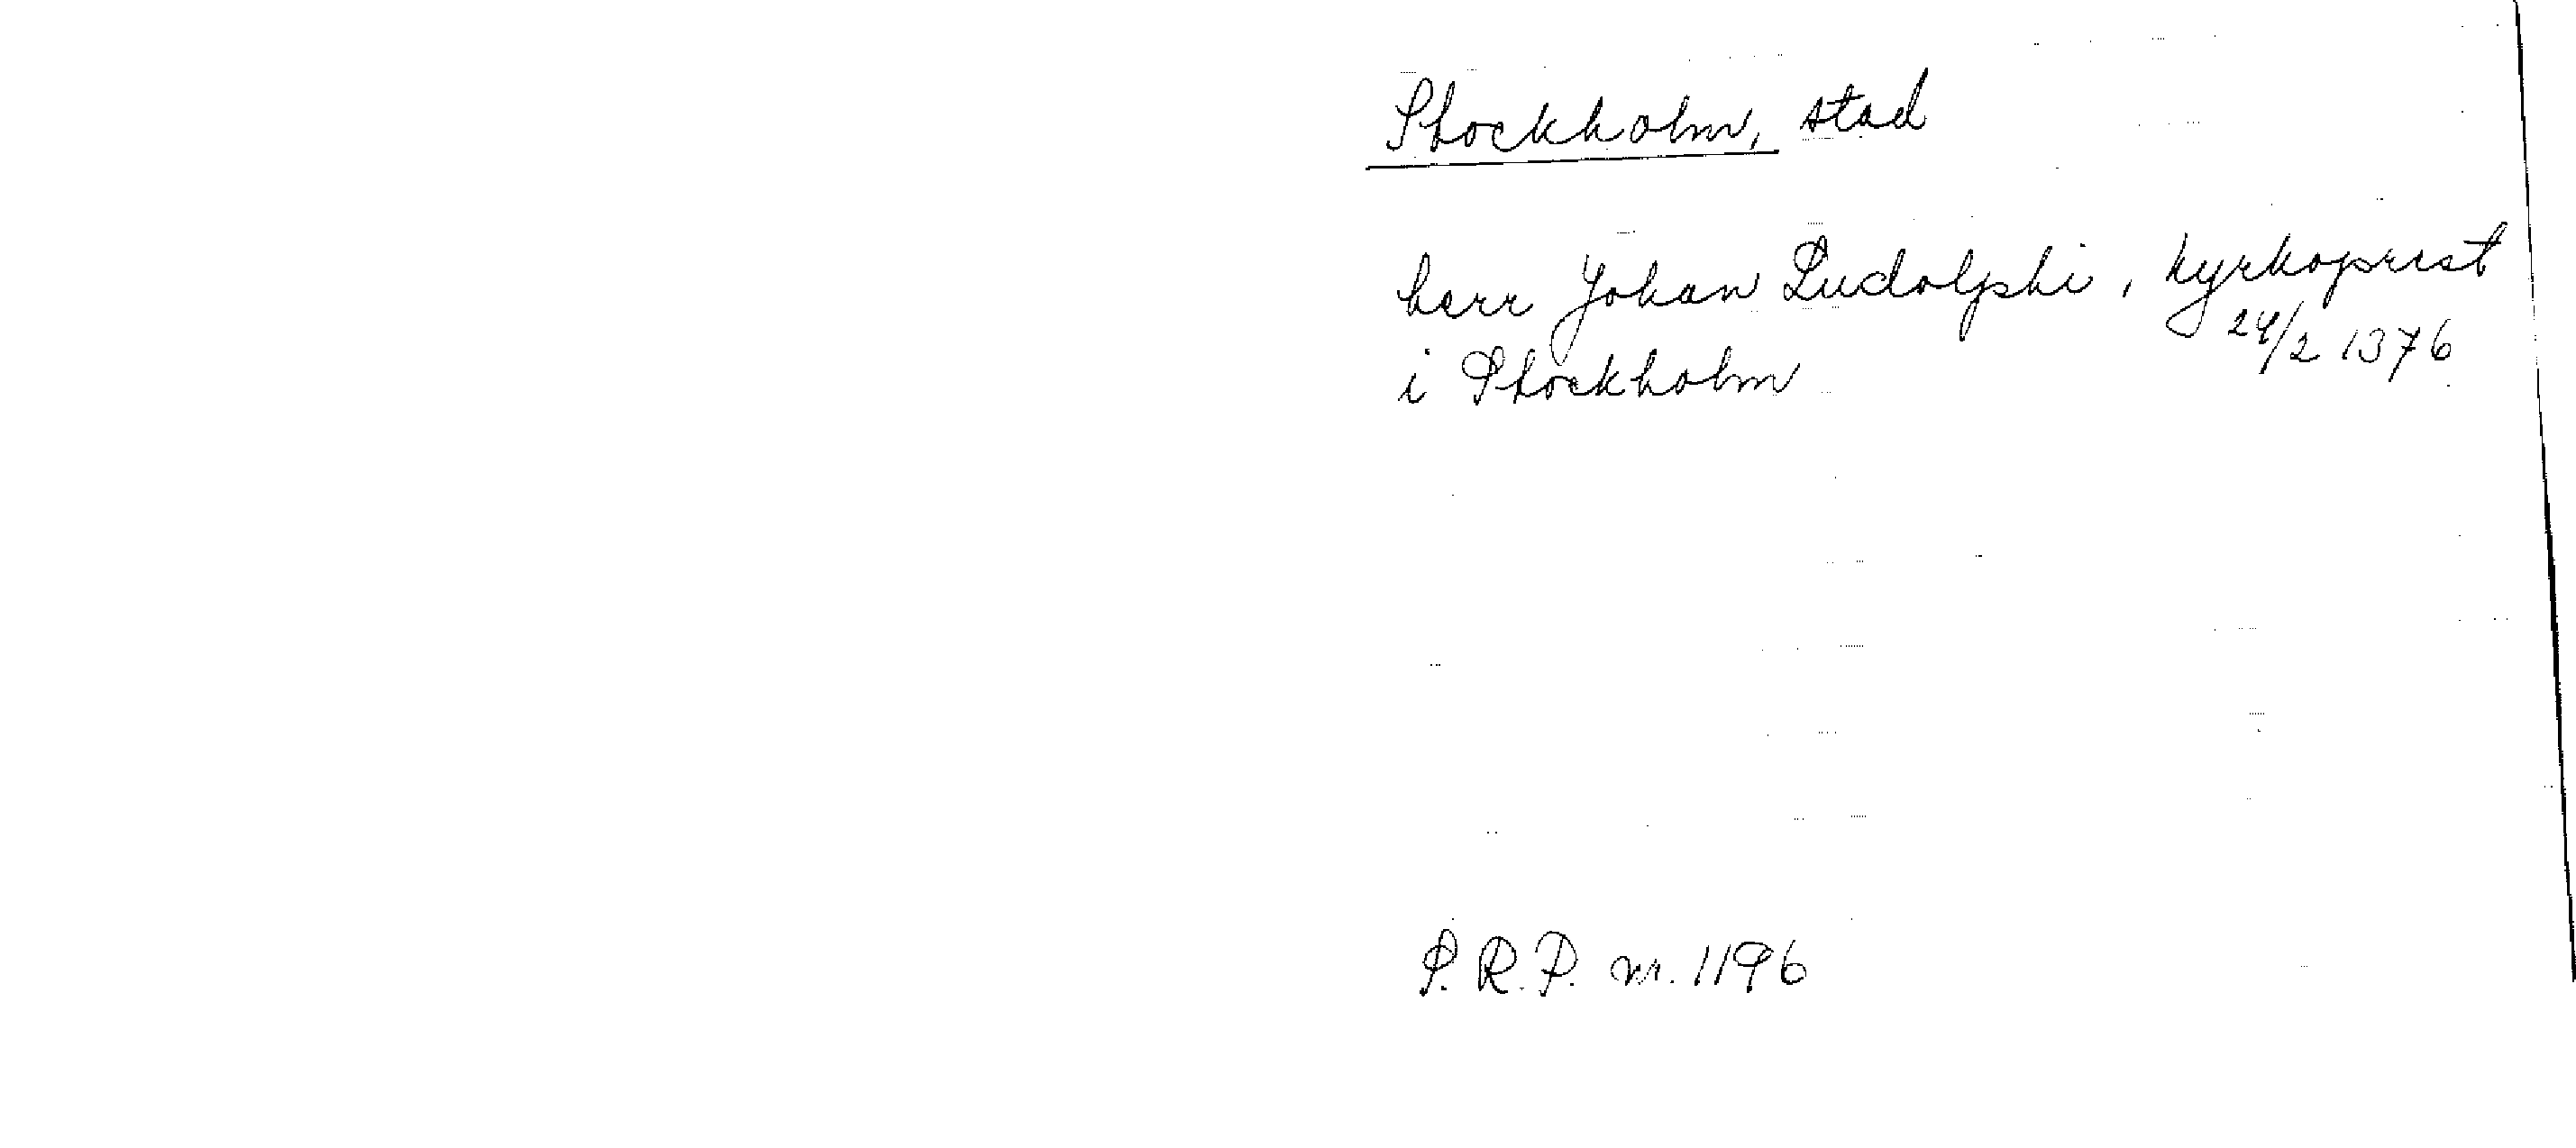 Stockholm, stad
herr Johan Ludolphi, kyrkoprest
24/2 1376
i Stockholm
S.R.P. nr. 1196